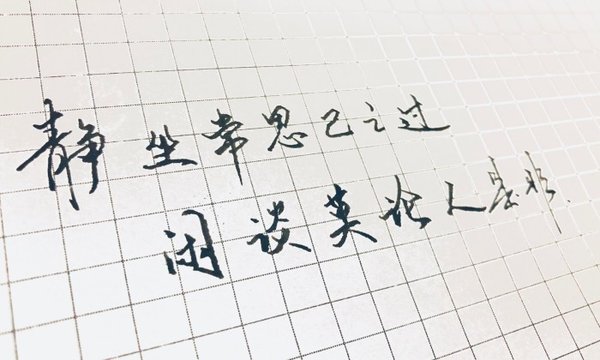 静坐常思己之过
闲谈莫论人是非